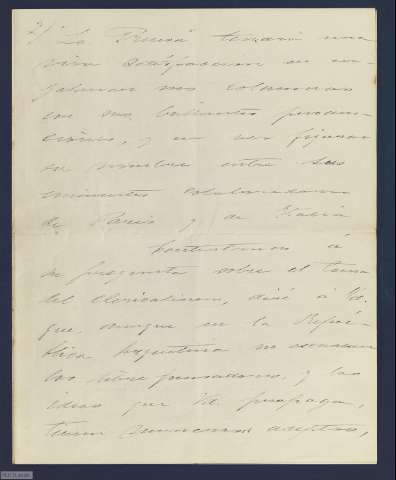 2/ "La Prensa" tendrá una
viva satisfacción en en-
galanar sus columnas
con sus brillantes produc-
ciones, y en ver figurar
su nombre entre sus
eminentes colaboradores
de Paris y de Italia
Contestando á
su pregunta sobre el tema
del Clericalismo, diré á Vd.
que, aunque en la Repú-
blica Argentina no escasean
los libre pensadores, y las
ideas que Vd. propaga,
tienen numerosos adeptos,